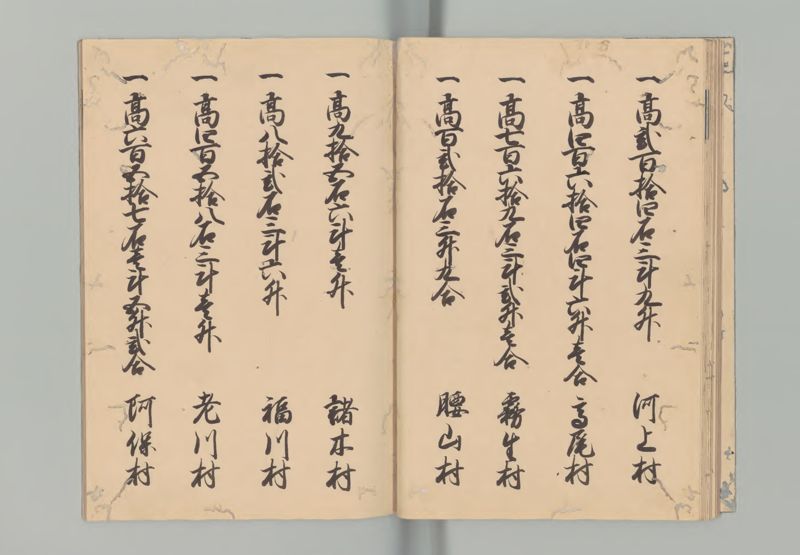 一高弐百拾四石三斗九升 河上村
一高四百六拾四石四斗六升壱合 高尾村
一高七百六拾九石三斗弐升壱合 霧生村
一高百弐拾石三升九合 腰山村
一高九拾五石六斗壱升 諸木村
一高八拾弐石三斗六升 福川村
一高四百五拾八石三斗壱升 老川村
一高六百五拾七石壱斗五升弐合 阿保村